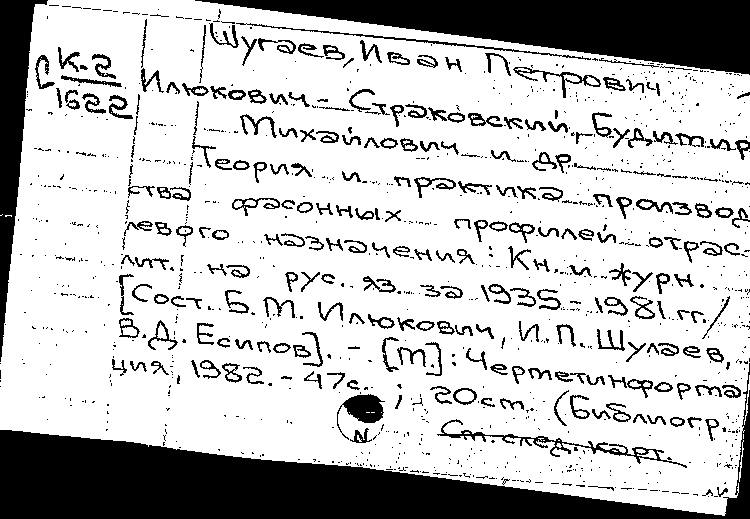 Шугаев, Иван Петрович
К-2
1622
Илюкович-Страковский, Будимир
Михайлович и др.
Теория и практика производ
ства фасонных профилей отрас-
левого назначения: Кн. и журн.
лит. на рус. яз. за 1935-1981 гг./
[Сост. Б.М. Илюкович, И.П. Шулаев,
В.Д. Есипов]. - [М]: Черметинформа
ция, 1982. - 47с. ; 20см. (Библиогр.
См. след. карт.
N